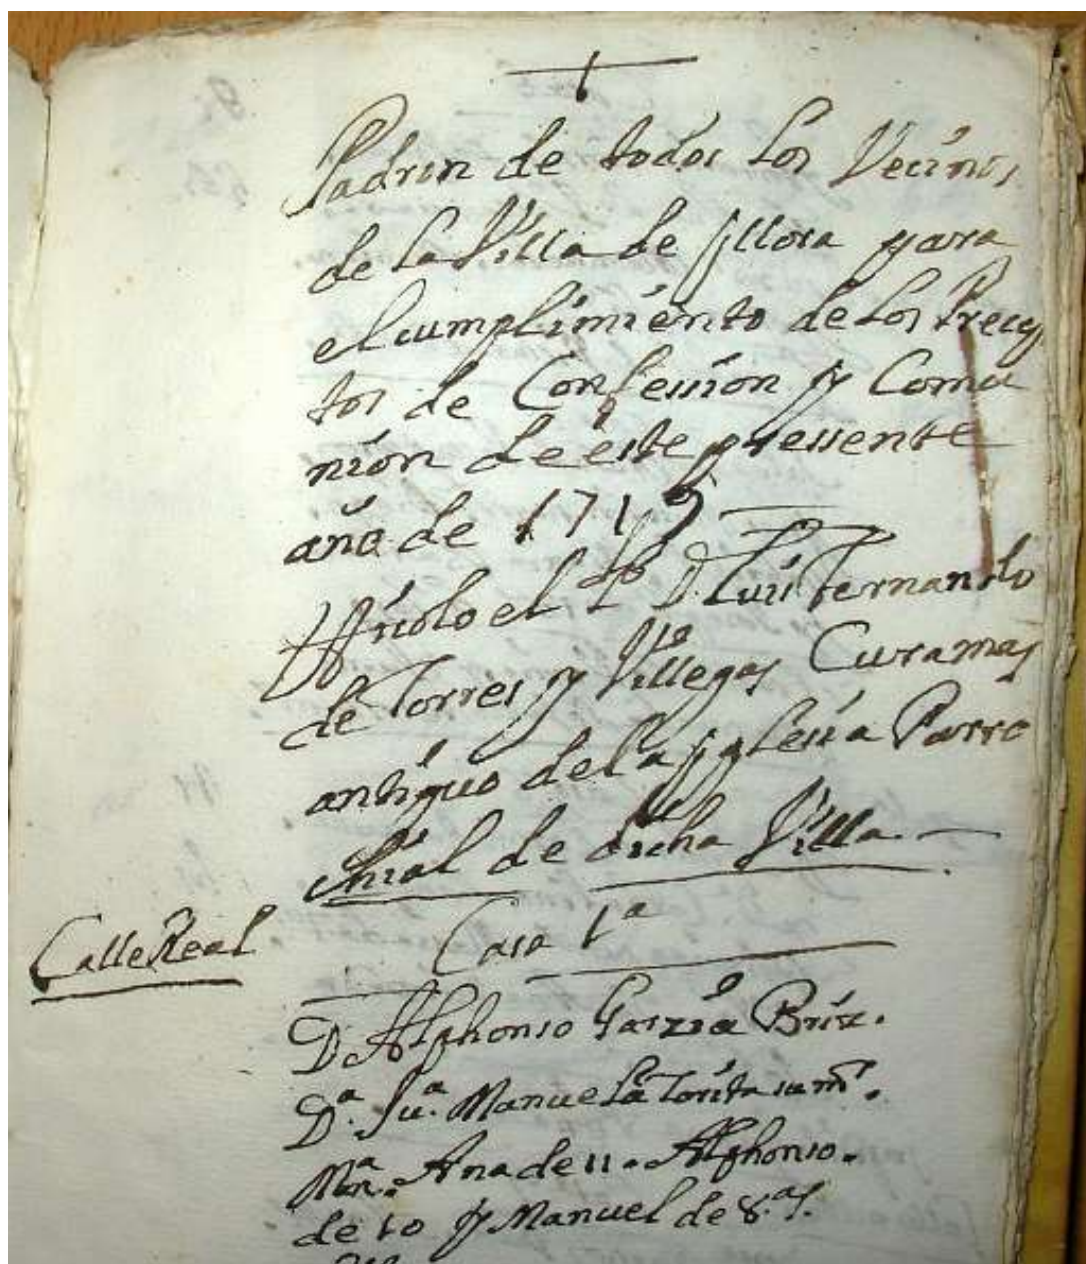 Padron de todos los Vecinos
de la Villa de Yllora para
el cumplimiento de los Precep
tos de Confession y Comu
nion de este pressente
año de 1715
Hízolo el Ldo D. Luis Fernando
de Torres y Villegas Cura mas
antiguo de la Yglesia Parro
chial de dicha Villa.
Calle Real
Casa 1ª
D. Alphonso Garzia Briz.
Dª. Juª. Manuela su mr.
Mª. Ana de 11. Alphonso.
de 10 y Manuel de 8. as.